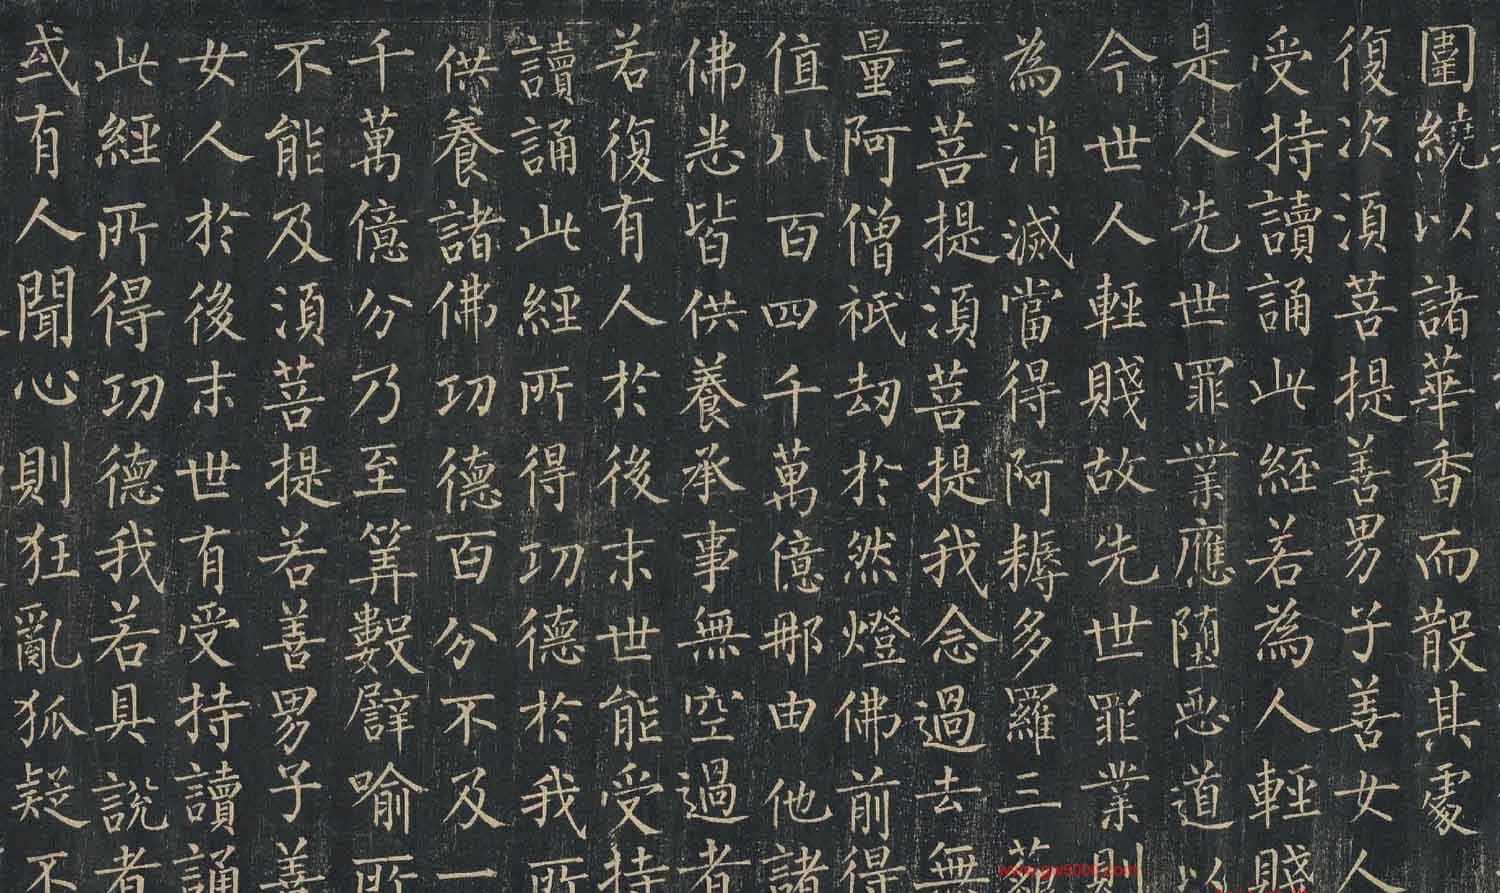 圍繞以諸華香而散其處
復次須菩提善男子善女人
受持讀誦此經若為人輕賤
是人先世罪業應堕惡道以
今世人輕賤故先世罪業則
為消滅當得阿耨多羅三菩
三菩提須菩提我念過去無
量阿僧祇劫於然燈佛前得
值八百四千萬億那由他諸
佛悉皆供養承事無空過者
若復有人於後末世能受持
讀誦此經所得功德於我所
供養諸佛功德百分不及一
千萬億分乃至筭數譬喻所
不能及須菩提若善男子善
女人於後末世有受持讀誦
此經所得功德我若具說者
或有人聞心則狂亂狐疑不